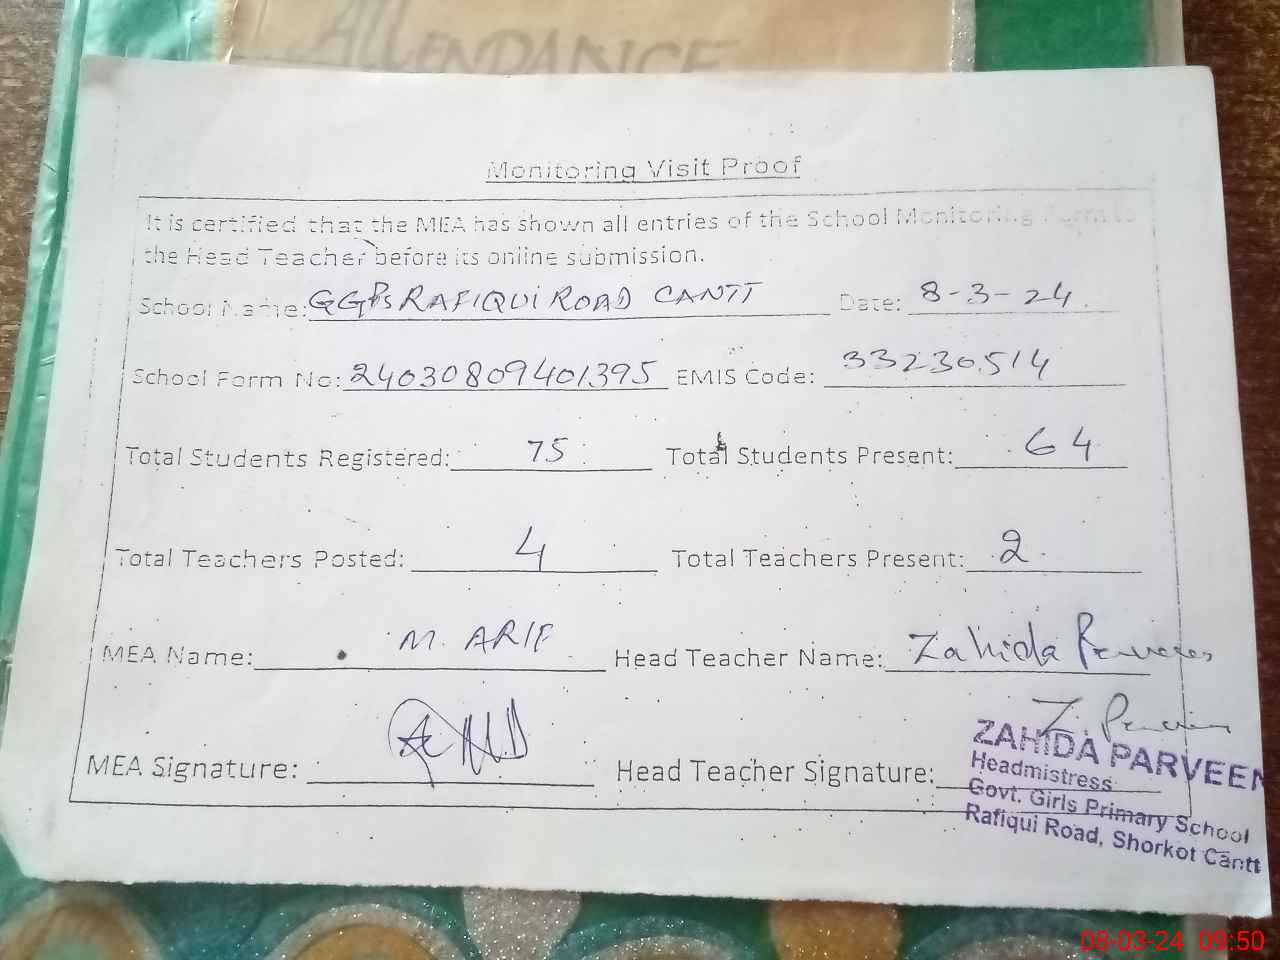 ATTENDANCE
Monitoring Visit Proof
It is certified that the MEA has shown all entries of the School Monitoring Form to
the Head Teacher before its online submission.
School Name: GGPS RAFIQUI ROAD CANTT Date: 8-3-24
School Form No: 24030809401395 EMIS Code: 33230514
Total Students Registered: 75 Total Students Present: 64
Total Teachers Posted: 4 Total Teachers Present: 2
MEA Name: M. ARIF Head Teacher Name: Zahida Parveen
MEA Signature: Head Teacher Signature: Z. Parveen
ZAHIDA PARVEEN
Headmistress
Govt. Girls Primary School
Rafiqui Road, Shorkot Cantt
08-03-24 09:50